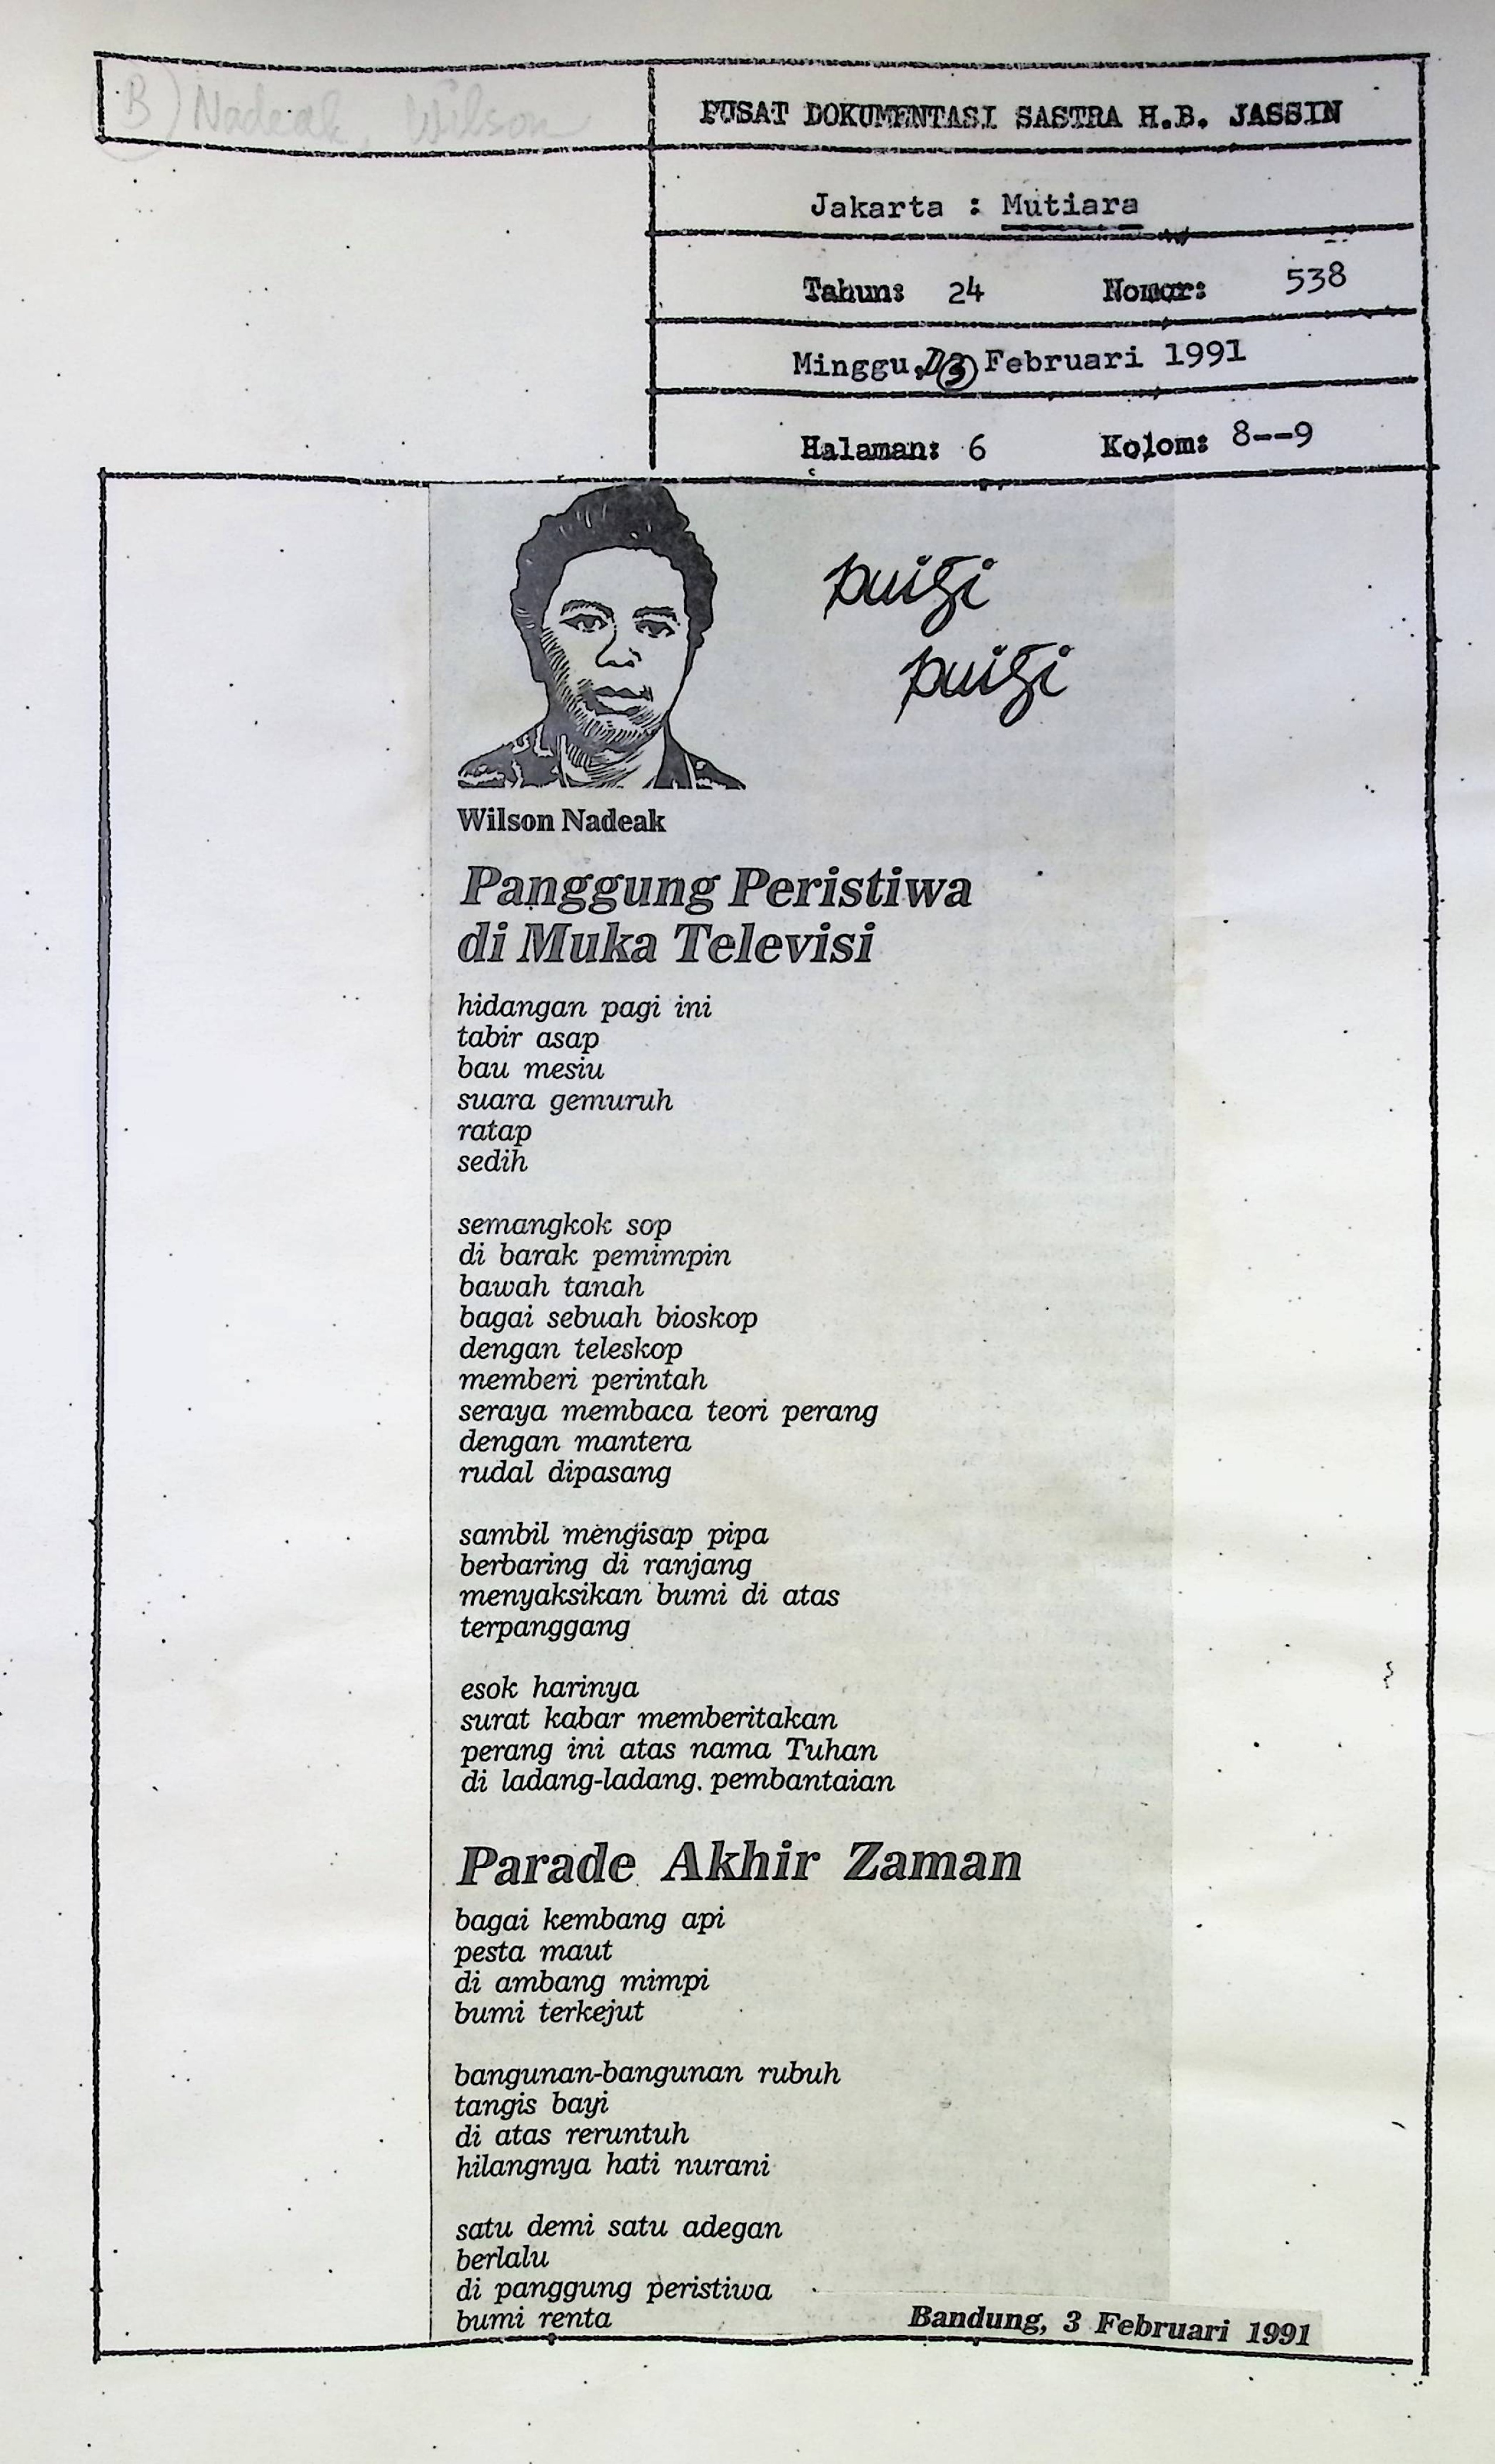 B) Nadeak, Wilson
PUSAT DOKUMENTASI SASTRA H.B. JASSIN
Jakarta : Mutiara
Tahun: 24 Nomor: 538
Minggu, 3 Februari 1991
Halaman: 6 Kolom: 8--9
puisi
puisi
Wilson Nadeak
Panggung Peristiwa
di Muka Televisi
hidangan pagi ini
tabir asap
bau mesiu
suara gemuruh
ratap
sedih
semangkok sop
di barak pemimpin
bawah tanah
bagai sebuah bioskop
dengan teleskop
memberi perintah
seraya membaca teori perang
dengan mantera
rudal dipasang
sambil mengisap pipa
berbaring di ranjang
menyaksikan bumi di atas
terpanggang
esok harinya
surat kabar memberitakan
perang ini atas nama Tuhan
di ladang-ladang pembantaian
Parade Akhir Zaman
bagai kembang api
pesta maut
di ambang mimpi
bumi terkejut
bangunan-bangunan rubuh
tangis bayi
di atas reruntuh
hilangnya hati nurani
satu demi satu adegan
berlalu
di panggung peristiwa
bumi renta
Bandung, 3 Februari 1991